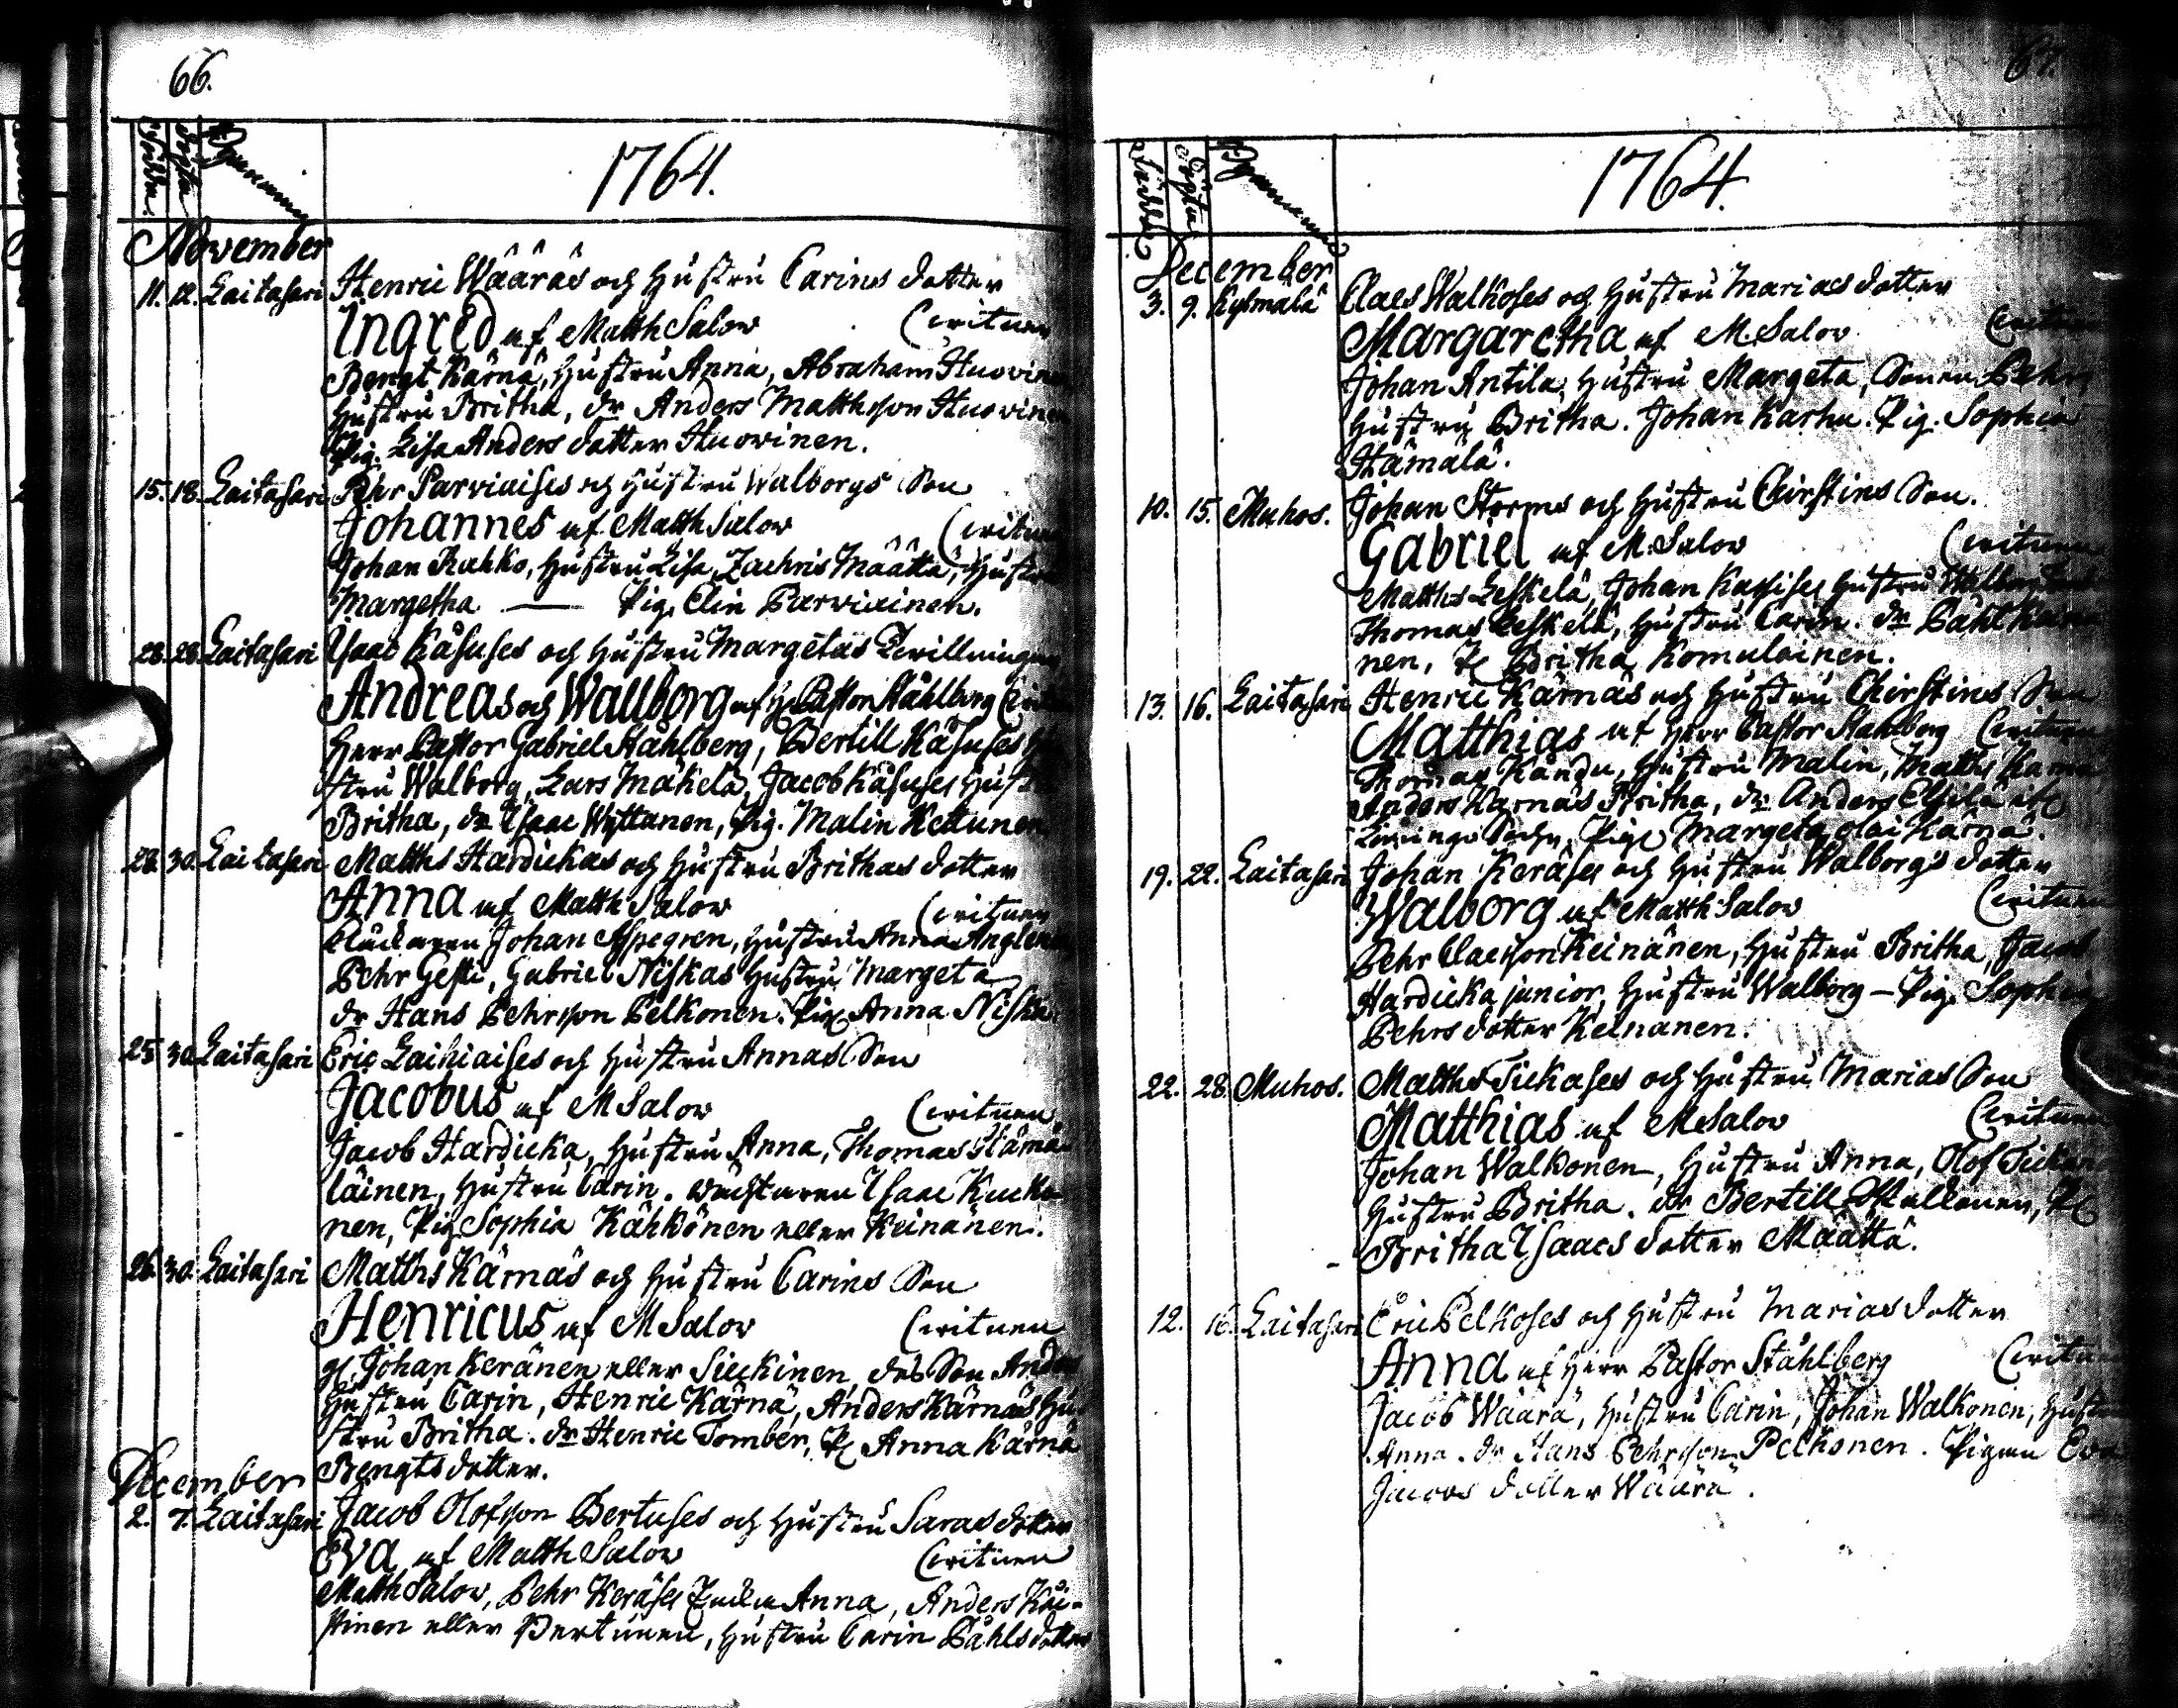 66.
1764.
November
11. 12. Laitasari Henric Wääräs och Hustru Carins dotter
Ingrid af Matth Salov Cerituen
Bengt Kärnä, Hustru Anna, Abraham Huovinen
Hustru Britha, dr Anders Matthsson Huovinen
Pig. Lisa Anders dotter Huovinen.
15. 18. Laitasari Pehr Parviaises och Hustru Walborgs Son
Johannes af Matth Salov
Johan Rahko, Hustru Lisa, Zachris Määttä, Hustru
Margetha — Pig. Elin Parviainen.
28. Laitasari Isaac Käsuses och Hustru Margetas Tvillningar
Andreas och Wallborg af H Pastor Ståhlberg
Herr Pastor Gabriel Ståhlberg, Bertill Käsuses Hu-
stru Walborg, Lars Mäkelä, Jacob Käsuses Hustru
Britha, dr Isaac Wyttanen, Pig. Malin Kettunen
28. 30. Laitasari Matths Hardickas och Hustru Brithas dotter
Anna af Matth Salov Cerituen
Klockaren Johan Aspegren, Hustru Anna
Pehr Gesti, Gabriel Niskas Hustru Margeta
dr Hans Pehrsson Pelkonen. Pig Anna Niska.
25 30 Laitasari Eric Laihiaises och Hustru Annas Son
Jacobus af M Salov Cerituen
Jacob Hardicka, Hustru Anna, Thomas Hämä-
läinen, Hustru Carin. Isaac Kucko-
nen, Pig Sophia Kähkönen eller Keinänen.
26. 30. Laitasari Matths Kärnäs och Hustru Carins Son
Henricus af M Salov Cerituen
gl. Johan Keränen eller Sieckinen, des Son Anders
Hustru Carin, Henric Kärnä, Anders Kärnäs Hu-
stru Britha. dr Henric Tomber, P Anna Kärnä
Bengts dotter.
December
2. 7. Laitasari Jacob Olofson Pertuses och Hustru Saras dotter
Eva af Matth Salov Cerituen
Matth Salov, Pehr Keräses Anna, Anders
eller Pertunen, Hustru Carin Påhls dotter
67.
1764.
December
3. 9. Kylmälä Claes Walkoses och Hustru Marias dotter
Margaretha af M Salov
Johan Antila, Hustru Margeta, Sonen Pehr,
Hustru Britha. Johan Karhu. Pig. Sophia
Hämälä.
10. 15. Muhos. Johan Storms och Hustru Chirstins Son.
Gabriel af M. Salov Cerituen
Matths Leskelä, Johan Hustru
Thomas Leskelä, Hustru Carin. dr Påhl
nen, P Britha Komulainen.
13. 16. Laitasari Henric Kärnäs och Hustru Chirstins Son
Matthias af Herr Pastor Ståhlberg Cerituen
Thomas Kändu, Hustru Malin, Matths Kärnä,
Anders Kärnäs Britha, dr Anders
Margeta Olai Kärnä.
19. 22. Laitasari Johan Keräses och Hustru Walborgs dotter
Walborg af Matth Salov Cerituen
Pehr Claesson Keinänen, Hustru Britha, Jacob
Hardicka junior, Hustru Walborg — Pig. Sophia
Pehrs dotter Keinänen.
22. 28. Muhos. Matths Tickases och Hustru Marias Son
Matthias af M Salov Cerituen
Johan Walkonen, Hustru Anna, Olof
Hustru Britha. dr Bertill P
Britha Isaacs dotter Määttä.
12. 16. Laitasari Eric Pelkoses och Hustru Marias dotter
Anna af Herr Pastor Ståhlberg
Jacob Wäärä, Hustru Carin, Johan Walkonen, Hustru
Anna. dr Hans Pehrsson Pelkonen. Pigan Eva
Jacobs dotter Wäärä.